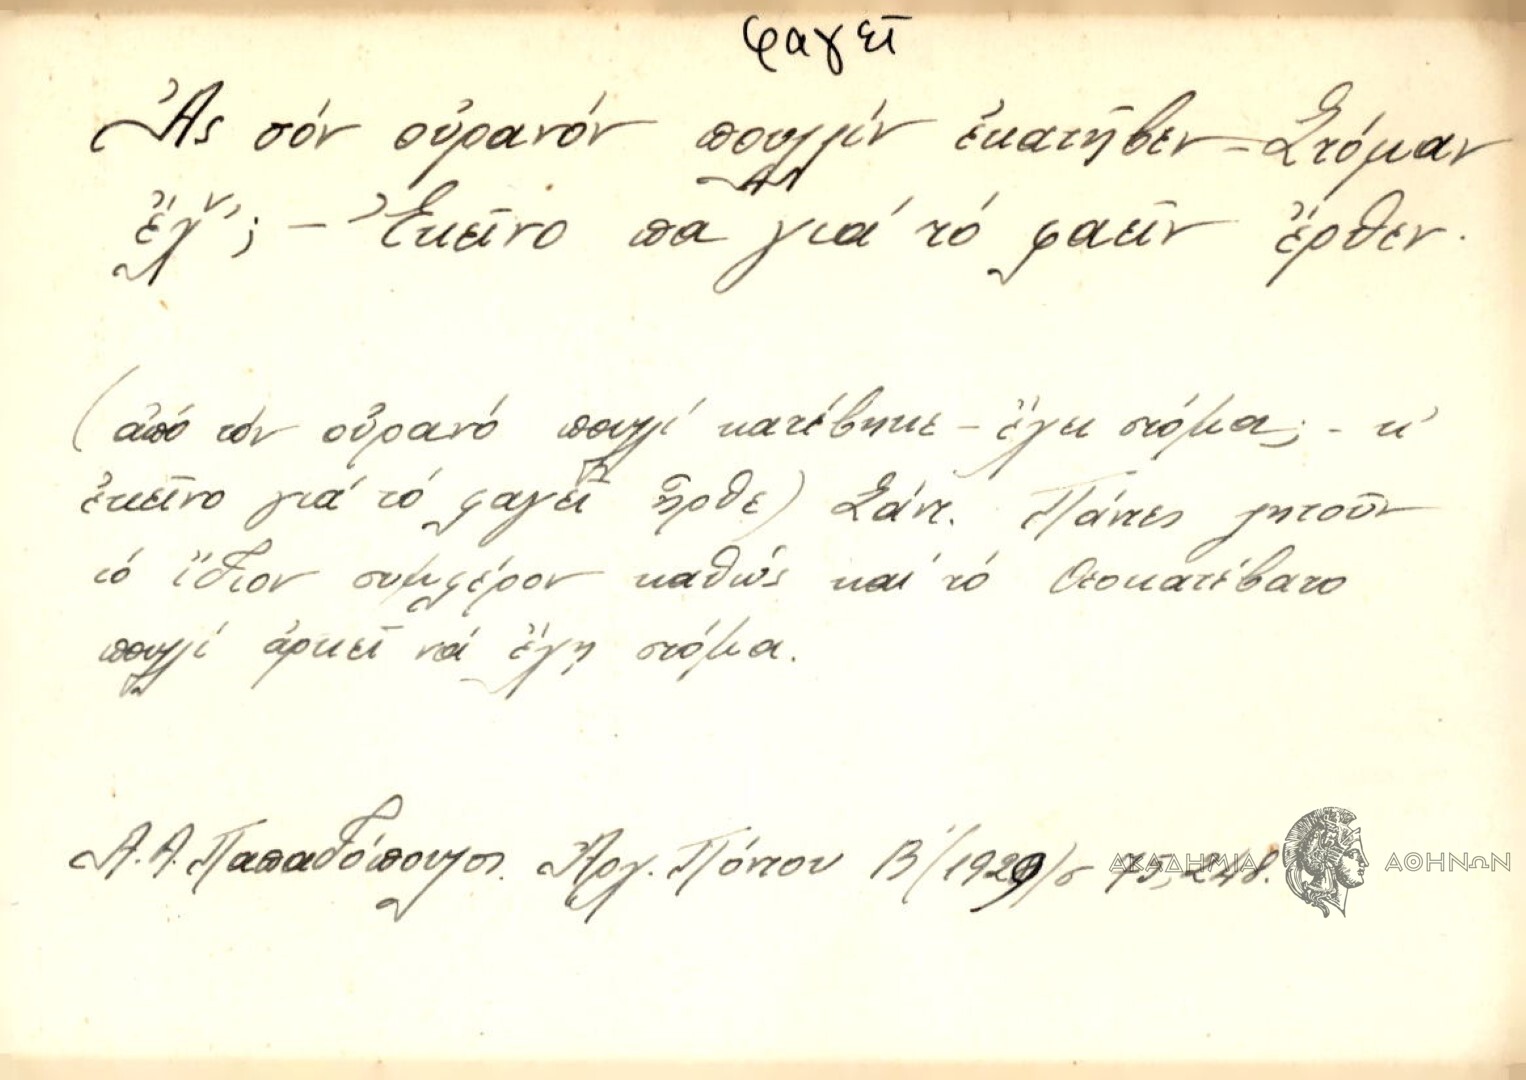 φαγεῖ
Ἀς σὸν οὐρανόν πουλλίν ἐκατῆβεν - Στόμαν
ἔχ̌'; - Ἐκεῖνο πα γιά τό φαεῖν ἔρθεν.
(ἀπό τόν οὐρανό πουλλί κατέβηκε - ἔχει στόμα; - κ'
ἐκεῖνο γιά τό φαγεῖ ἦρθε) Σάντ. Πάντες ζητοῦν
τό ἴδιον συμφέρον καθώς καί τό θεοκατέβατο
πουλλί ἀρκεῖ νά ἔχῃ στόμα.
Α. Α. Παπαδόπουλος. Ἀρχ. Πόντου Β' (1929) σ 75, 248.
ΑΚΑΔΗΜΙΑ ΑΘΗΝΩΝ